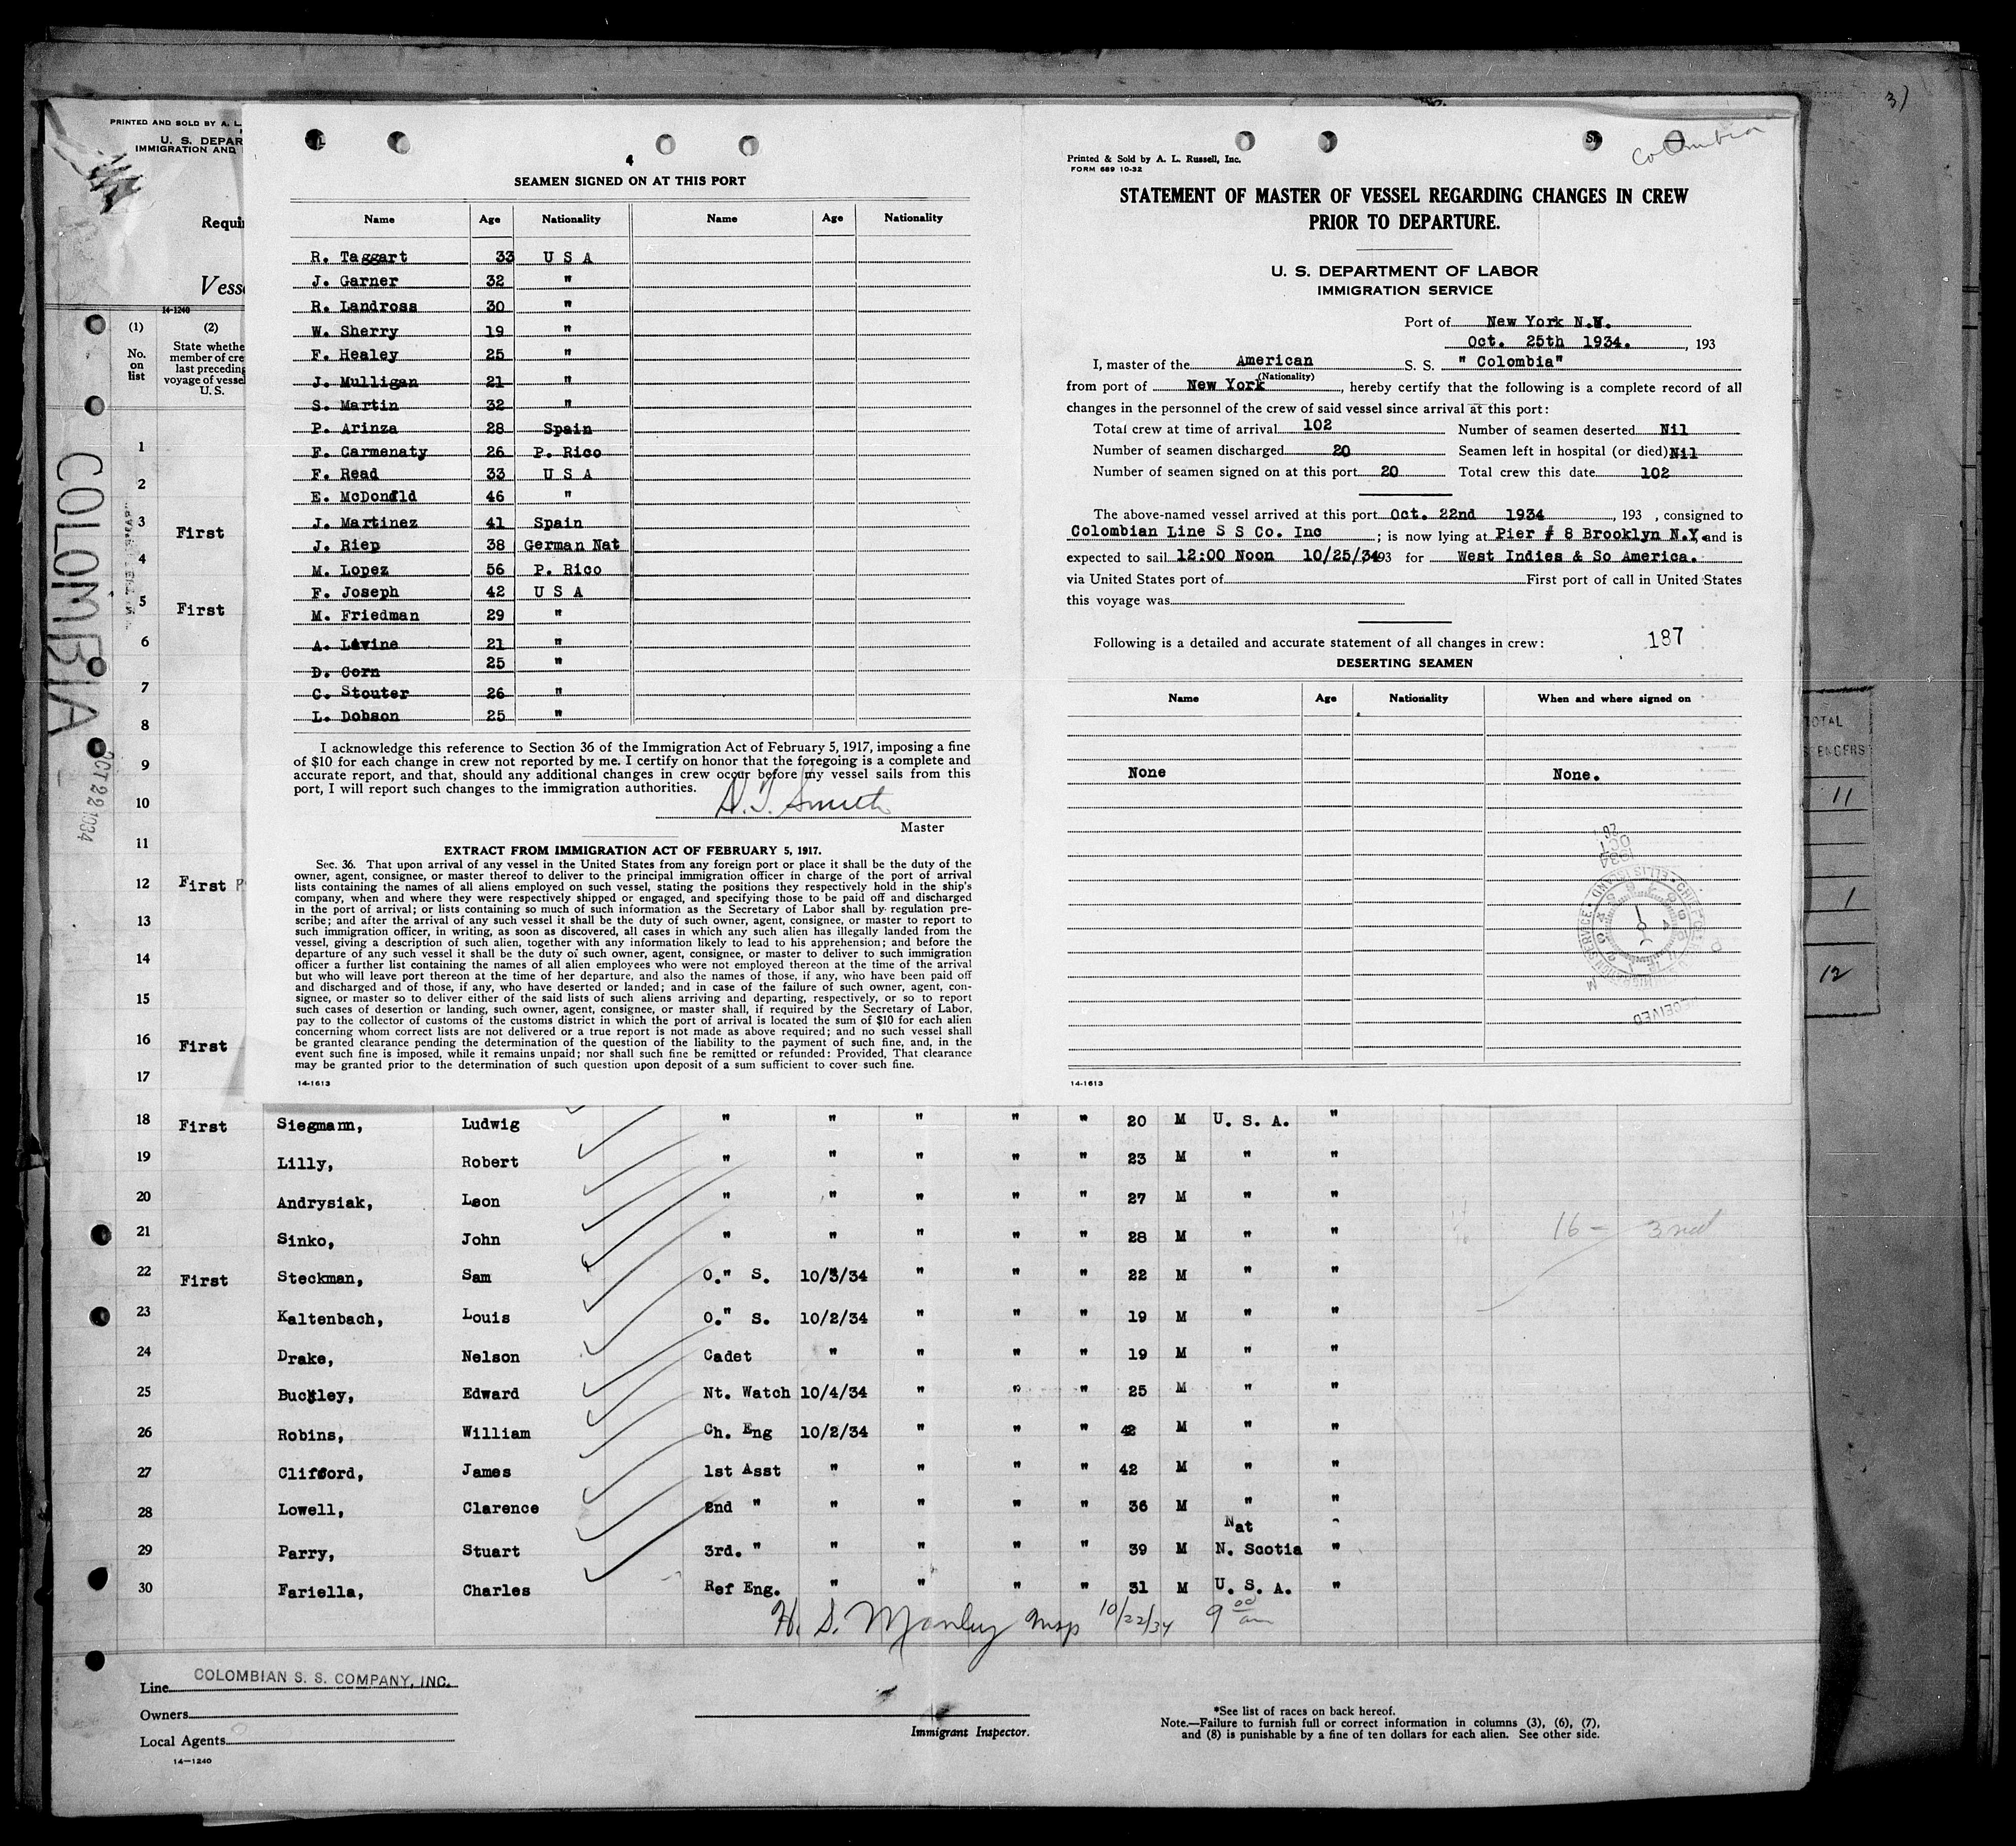 3)
PRINTED AND SOLD BY A. L.
U. S. DEPAR
IMMIGRATION AND
Requir
Vess
14-1240
(1) (2)
No. on list
State whethe
member of cre
last preceding
voyage of vessel
U. S.
COLOMBIA
OCT 22 1934
1
2
3 First
4
5 First
6
7
8
9
10
11
12 First P
13
14
15
16 First
17
4
SEAMEN SIGNED ON AT THIS PORT
Name Age Nationality Name Age Nationality
R. Taggart 33 U S A
J. Garner 32 "
R. Landross 30 "
W. Sherry 19 "
F. Healey 25 "
J. Mulligan 21 "
S. Martin 32 "
P. Arinza 28 Spain
F. Carmenaty 26 P. Rico
F. Read 33 U S A
E. McDonald 46 "
J. Martinez 41 Spain
J. Riep 38 German Nat
M. Lopez 56 P. Rico
F. Joseph 42 U S A
M. Friedman 29 "
A. Levine 21 "
D. Corn 25 "
C. Stouter 26 "
L. Dobson 25 "
I acknowledge this reference to Section 36 of the Immigration Act of February 5, 1917, imposing a fine
of $10 for each change in crew not reported by me. I certify on honor that the foregoing is a complete and
accurate report, and that, should any additional changes in crew occur before my vessel sails from this
port, I will report such changes to the immigration authorities.
Smith
Master
EXTRACT FROM IMMIGRATION ACT OF FEBRUARY 5, 1917.
Sec. 36. That upon arrival of any vessel in the United States from any foreign port or place it shall be the duty of the
owner, agent, consignee, or master thereof to deliver to the principal immigration officer in charge of the port of arrival
lists containing the names of all aliens employed on such vessel, stating the positions they respectively hold in the ship's
company, when and where they were respectively shipped or engaged, and specifying those to be paid off and discharged
in the port of arrival; or lists containing so much of such information as the Secretary of Labor shall by regulation pre-
scribe; and after the arrival of any such vessel it shall be the duty of such owner, agent, consignee, or master to report to
such immigration officer, in writing, as soon as discovered, all cases in which any such alien has illegally landed from the
vessel, giving a description of such alien, together with any information likely to lead to his apprehension; and before the
departure of any such vessel it shall be the duty of such owner, agent, consignee, or master to deliver to such immigration
officer a further list containing the names of all alien employees who were not employed thereon at the time of the arrival
but who will leave port thereon at the time of her departure, and also the names of those, if any, who have been paid off
and discharged and of those, if any, who have deserted or landed; and in case of the failure of such owner, agent, con-
signee, or master so to deliver either of the said lists of such aliens arriving and departing, respectively, or so to report
such cases of desertion or landing, such owner, agent, consignee, or master shall, if required by the Secretary of Labor,
pay to the collector of customs of the customs district in which the port of arrival is located the sum of $10 for each alien
concerning whom correct lists are not delivered or a true report is not made as above required; and no such vessel shall
be granted clearance pending the determination of the question of the liability to the payment of such fine, and, in the
event such fine is imposed, while it remains unpaid; nor shall such fine be remitted or refunded: Provided, That clearance
may be granted prior to the determination of such question upon deposit of a sum sufficient to cover such fine.
14-1613
Colombia
Printed & Sold by A. L. Russell, Inc.
FORM 689 10-32
STATEMENT OF MASTER OF VESSEL REGARDING CHANGES IN CREW
PRIOR TO DEPARTURE.
U. S. DEPARTMENT OF LABOR
IMMIGRATION SERVICE
Port of New York N.Y.
Oct. 25th 1934. , 193
I, master of the American S. S. " Colombia"
(Nationality)
from port of New York , hereby certify that the following is a complete record of all
changes in the personnel of the crew of said vessel since arrival at this port:
Total crew at time of arrival 102 Number of seamen deserted Nil
Number of seamen discharged 20 Seamen left in hospital (or died) Nil
Number of seamen signed on at this port 20 Total crew this date 102
The above-named vessel arrived at this port Oct. 22nd 1934 , 193 , consigned to
Colombian Line S S Co. Inc ; is now lying at Pier # 8 Brooklyn N.Y. and is
expected to sail 12:00 Noon 10/25/34 193 for West Indies & So America.
via United States port of First port of call in United States
this voyage was
Following is a detailed and accurate statement of all changes in crew: 187
DESERTING SEAMEN
Name Age Nationality When and where signed on
None None.
OCT 1934
RECEIVED
14-1613
TOTAL
11
1
12
18 First Siegmann, Ludwig " " " " " 20 M U. S. A. "
19 Lilly, Robert " " " " " 23 M " "
20 Andrysiak, Leon " " " " " 27 M " "
21 Sinko, John " " " " " 28 M " "
16 - 3 nat
22 First Steckman, Sam O." S. 10/3/34 " " " 22 M " "
23 Kaltenbach, Louis O." S. 10/2/34 " " " 19 M " "
24 Drake, Nelson Cadet " " " " 19 M " "
25 Buckley, Edward Nt. Watch 10/4/34 " " " 25 M " "
26 Robins, William Ch. Eng 10/2/34 " " " 42 M " "
27 Clifford, James 1st Asst " " " " 42 M " "
28 Lowell, Clarence 2nd " " " " " 36 M " "
29 Parry, Stuart 3rd. " " " " " 39 M Nat N. Scotia "
30 Fariella, Charles Ref Eng. " " " " 31 M U. S. A. "
H. S. Manley Insp 10/22/34 9 00 am
Line COLOMBIAN S. S. COMPANY, INC.
Owners
Local Agents
14-1240
Immigrant Inspector.
*See list of races on back hereof.
Note.—Failure to furnish full or correct information in columns (3), (6), (7),
and (8) is punishable by a fine of ten dollars for each alien. See other side.